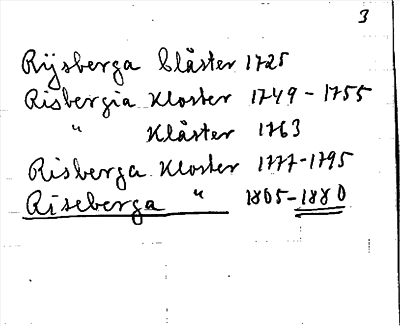 3
Rÿsberga Clåster 1725
Risbergia Kloster 1749-1755
" Klåster 1763
Risberga Kloster 1777-1795
Riseberga " 1805-1880